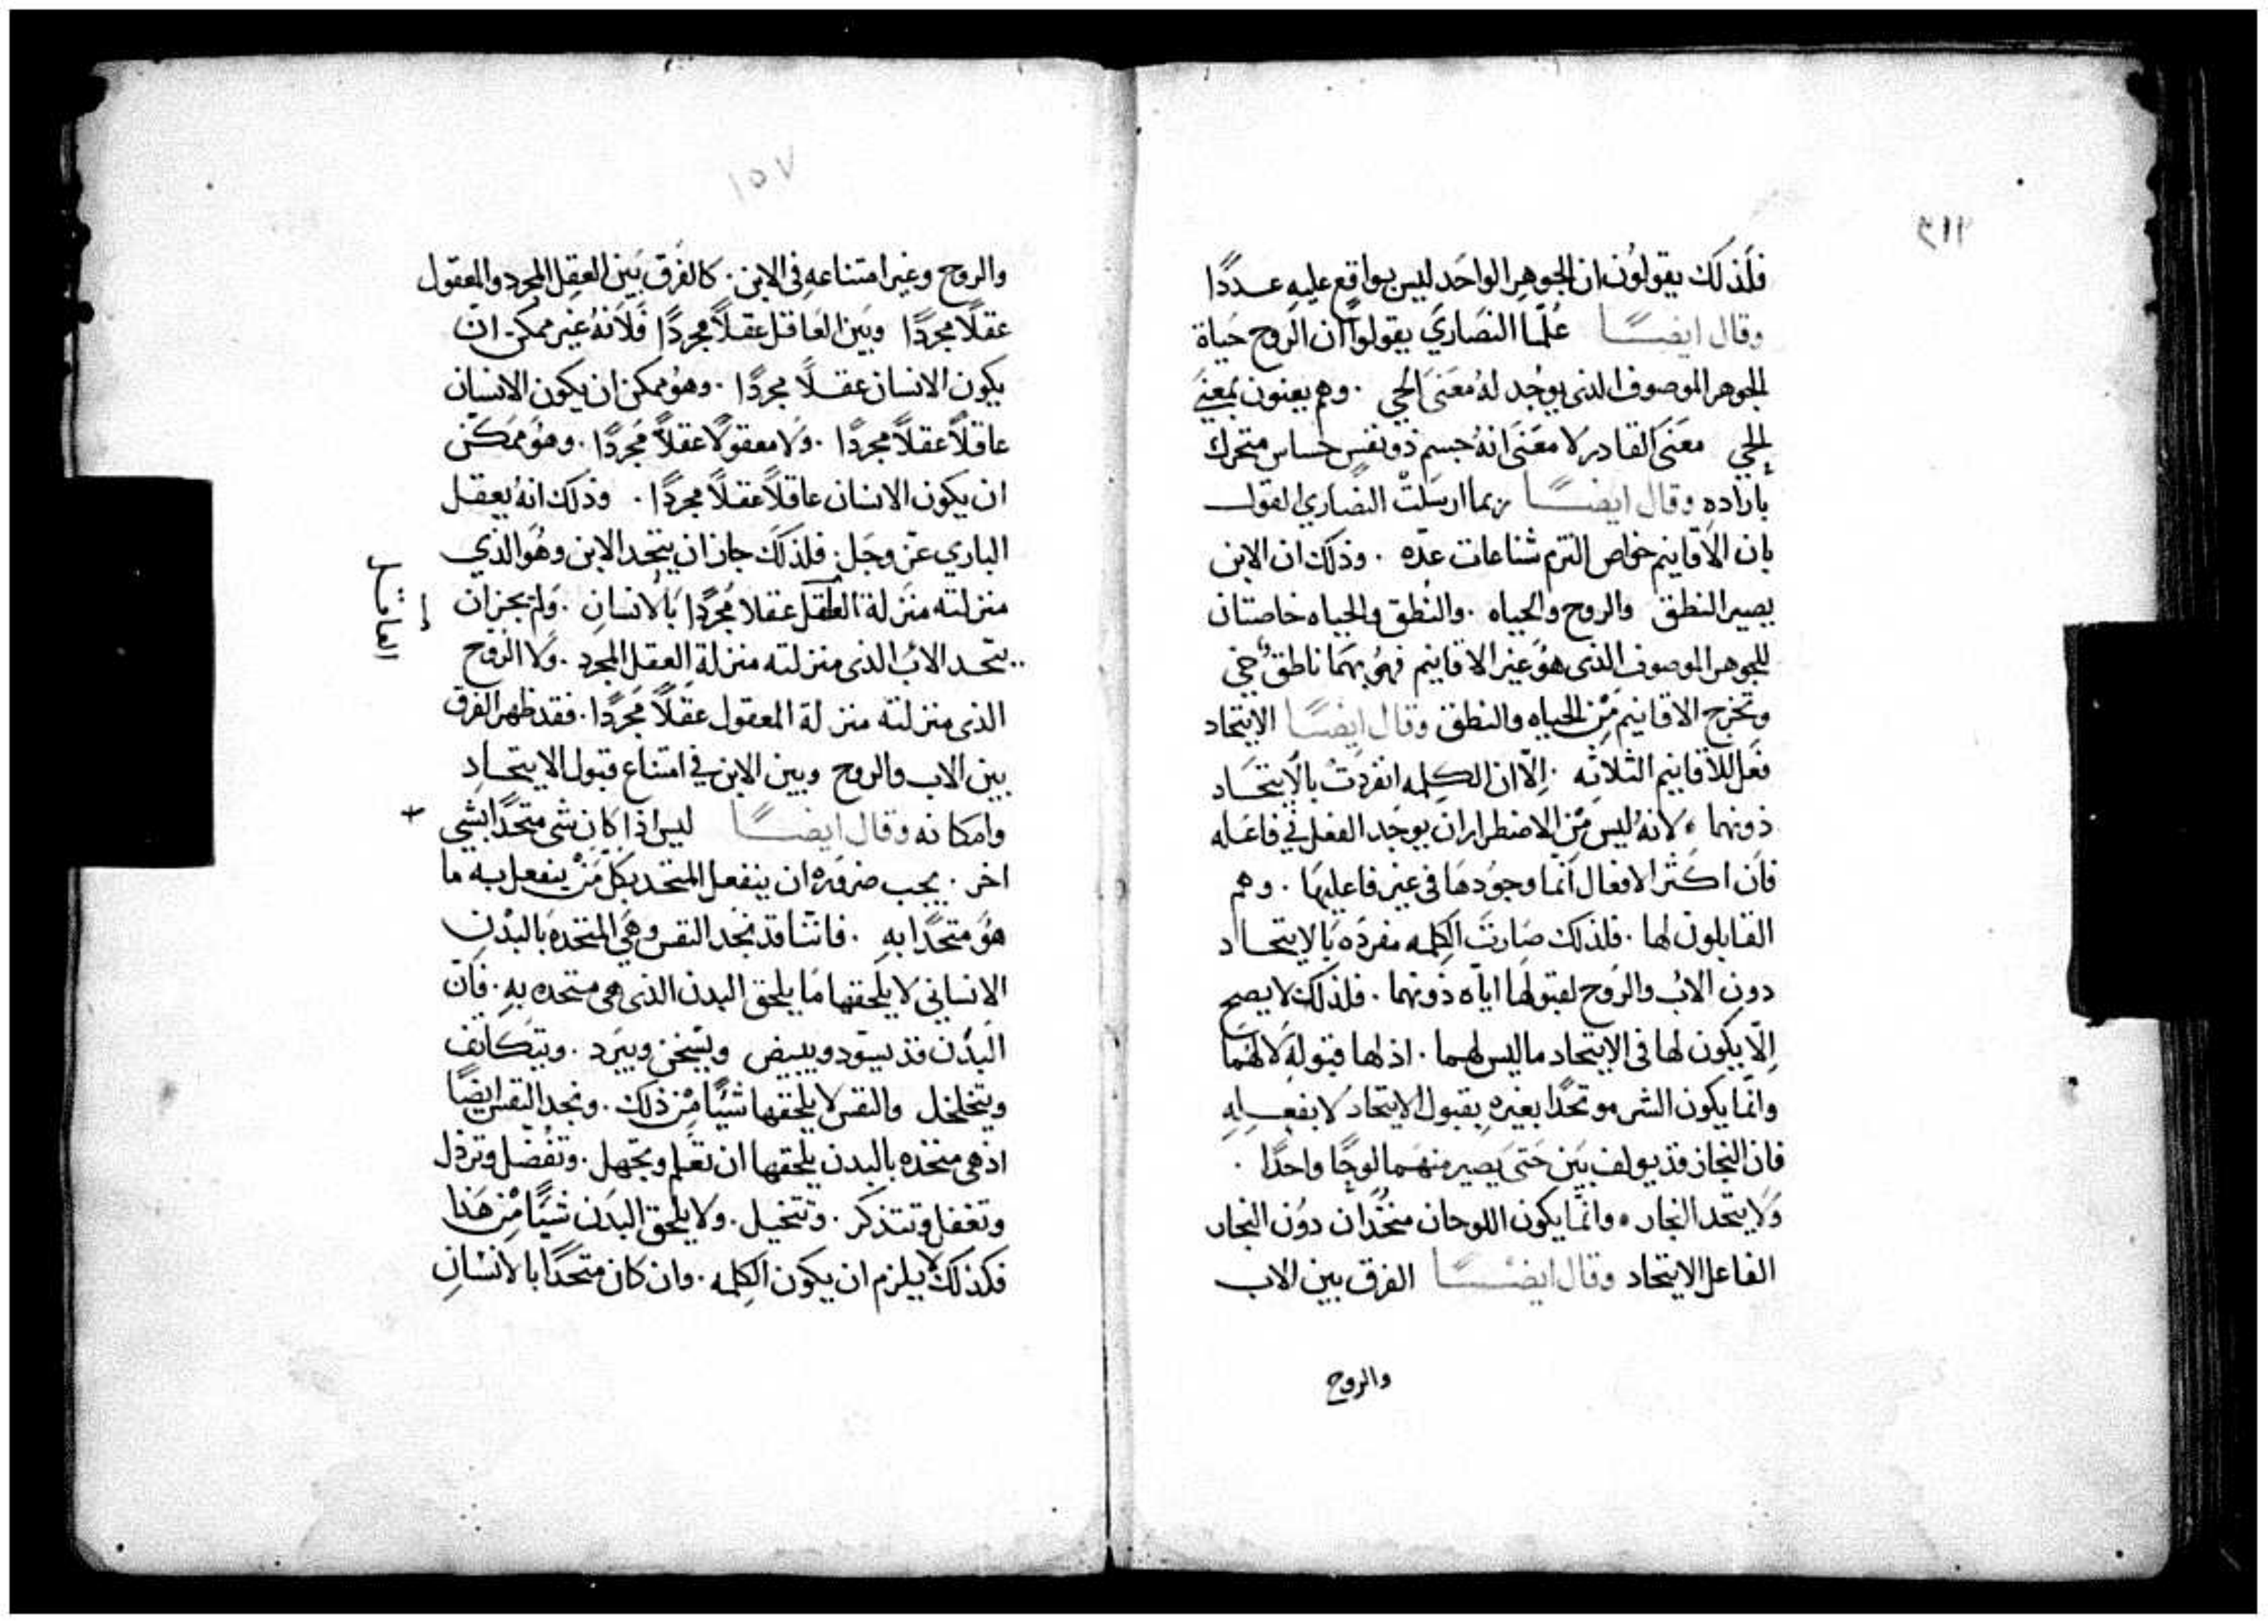 فلذلك يقولون ان الجوهر الواحد ليس بواقع عليه عددًا
وقال ايضًا علما النصاري يقولوا ان الروح حياة
الجوهر الموصوف الذي يوجد له معنى الحي . وهم يعنون بمعنى
الحي معنى القادر لا معنى انه جسم ذو نفس حساس متحرك
بارادهِ وقال ايضًا ربما ارسلت النصاري القول
بان الاقانيم خواص التزم شناعات عدّه . وذلك ان الابن
يصير النطق والروح والحياه . والنطق والحياه خاصتان
للجوهر الموصوف الذي هو غير الاقانيم فهو بهما ناطق حي
وتخرج الاقانيم مِن الحياه والنطق وقال ايضًا الايتحاد
فعل للاقانيم الثلاثه . اِلّا ان الكلمه انفردت بالايتحاد
دونهما . لانه ليس مِن الاضطرار ان يوجد الفعل في فاعله
فان اكثر الافعال انما وجودها في غير فاعليها . وهم
القابلون لها . فلذلك صارت الكلمه مفرده بالايتحاد
دون الاب والروح لقبولها اياه دونهما . فلذلك لا يصح
اِلّا يكون لها في الايتحاد ما ليس لهما . اذ لها قبوله لا لهما
وانما يكون الشي موتحدًا بغيرهِ بقبول الايتحاد لا بفعلهِ
فان النجار قد يولف بين حتى يصير منهما لوحًا واحدًا .
ولا يتحد النجار . وانما يكون اللوحان متحدان دون النجار
الفاعل الايتحاد وقال ايضًا الفرق بين الاب
والروح
١٥٧
والروح وغير امتناعهِ في الابن . كالفرق بين العقل المجرد والمعقول
عقلًا مجردًا وبين العاقل عقلًا مجردًا فلانه غير ممكن ان
يكون الانسان عقلًا مجردًا . وهو ممكن ان يكون الانسان
عاقلًا عقلًا مجردًا . ولا معقولًا عقلًا مجردًا . وهو ممكن
ان يكون الانسان عاقلًا عقلًا مجردًا . وذلك انه يعقل
الباري عزّ وجل . فلذلك جاز ان يتحد الابن وهو الذي
منزلته منزلة العقل عقلا مجردًا بالانسانِ . ولم يجز ان
العاقل
يتحد الاب الذي منزلته منزلة العقل المجرد . ولا الروح
الذي منزلته منزلة المعقول عقلًا مجردًا . فقد ظهر الفرق
بين الاب والروح وبين الابن في امتناع قبول الايتحادِ
وامكانه وقال ايضًا ليس اذا كان شي متحدًا بشي
اخر . يجب ضروره ان ينفعل المتحد بكل مَن ينفعل به ما
هو متحدًا به . فاننا قد نجد النفس وهي المتحده بالبدنِ
الانساني لا يلحقها ما يلحق البدن الذي هي متحده بهِ . فان
البدن قد يسود ويبيض ويسخن ويبرد . ويتكاثف
ويتخلخل والنفس لا يلحقها شيًا مِن ذلك . ونجد النفس ايضًا
اذ هي متحده بالبدن يلحقها ان تعلم وتجهل . وتفضل وترذل
وتغفل وتتذكر . وتتخيل . ولا يلحق البدن شيًا مِن هذا
فكذلك لا يلزم ان يكون الكلمه . وان كان متحدًا بالانسانِ